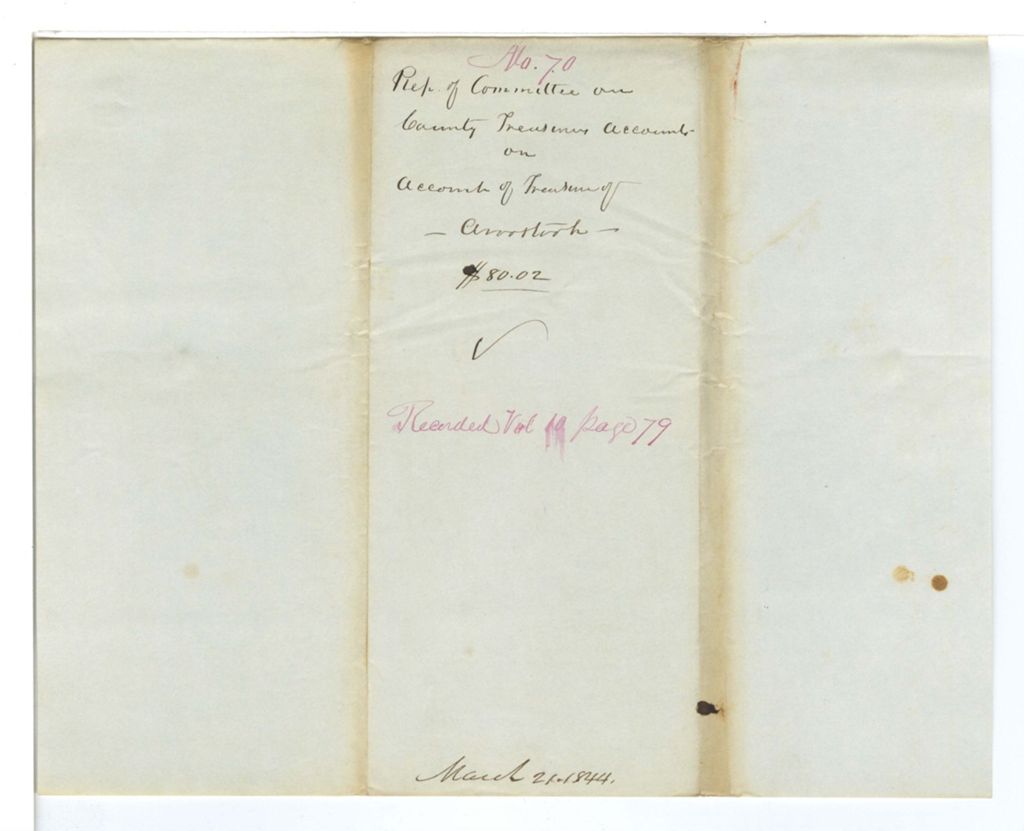 No. 70
Rep. of Committee on
County Treasurers Accounts
on
Account of Treasurer of
— Aroostook —
$80.02
Recorded Vol page 79
March 21. 1844.